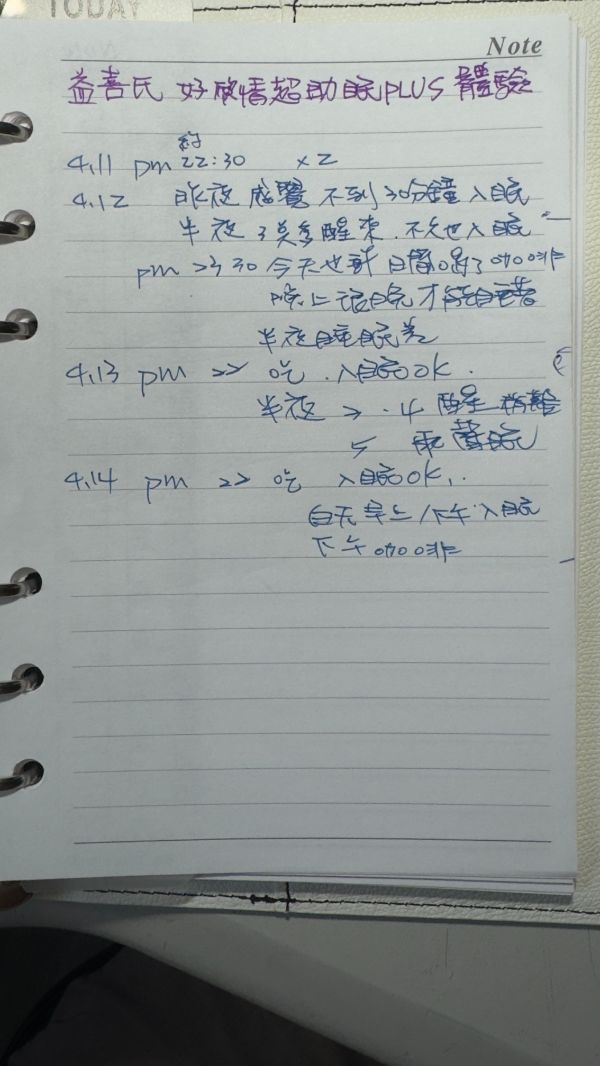 TODAY
Note
益喜氏 好放情超助眠PLUS 體驗
約
4.11 pm 22:30 x2
4.12 昨夜感覺不到30分鐘入眠
半夜3點多醒來.不久也入眠
pm 23 30 今天也許白天喝了咖啡
晚上 才能睡著
半夜睡眠差
4.13 pm 22 吃.入眠OK.
半夜 3.4 醒
4.14 pm 22 吃 入眠OK..
白天早上/下午入眠
下午咖啡